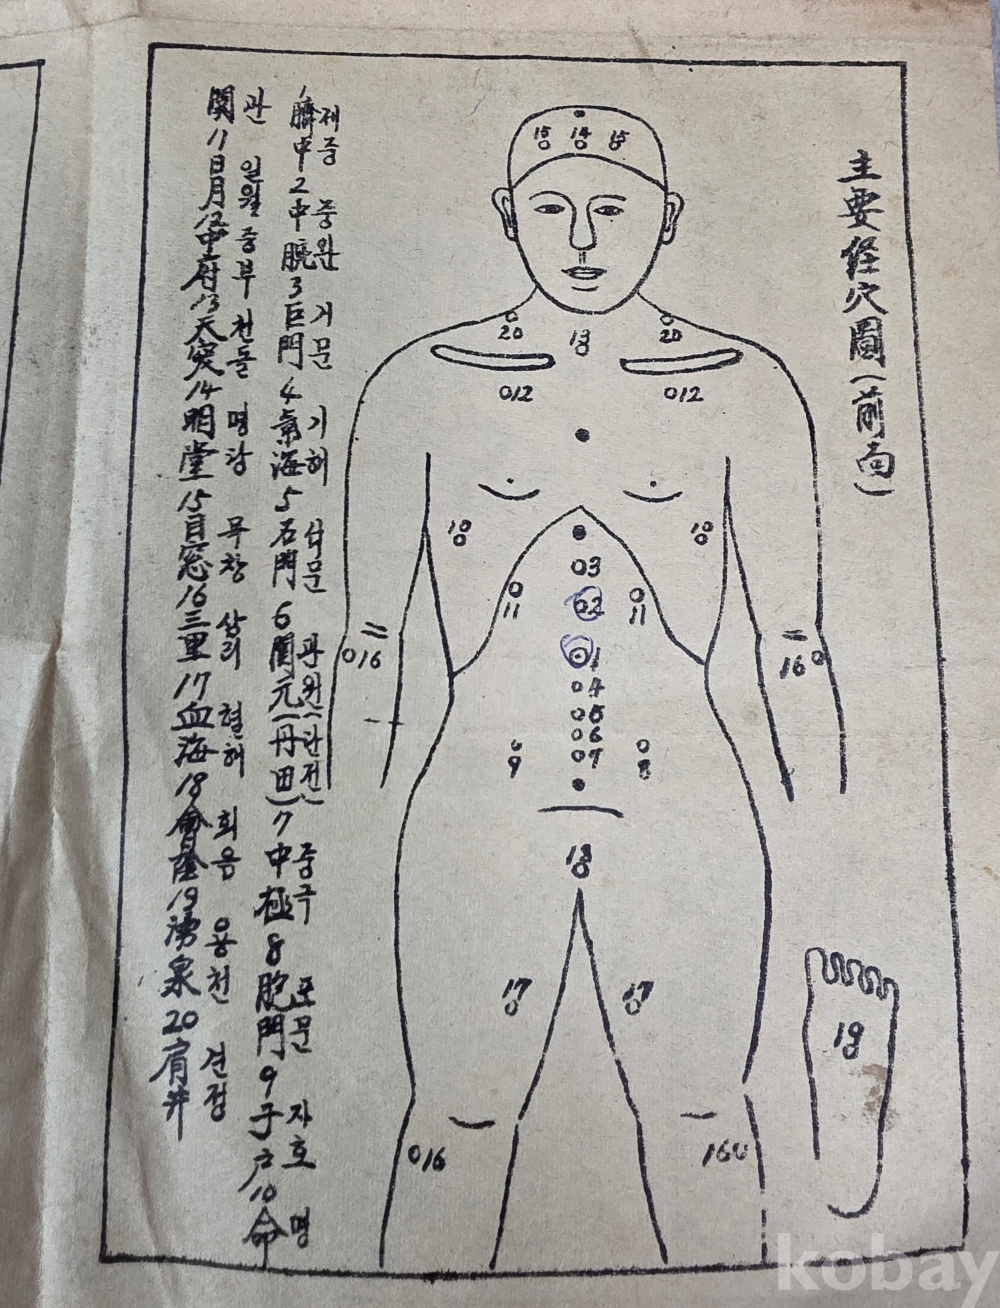 主要経穴圖(前面)
15 14 15
20 13 20
12 12
10 10
3
11 2 11
1
16 16
4
5
6
9 7 8
18
17 17
19
16 16
제중 중완 거문 기해 석문 관원(단전) 중극 포문 자호 명
1臍中2中脘3巨門4氣海5石門6関元(丹田)7中極8胞門9子戸10命
관 일월 중부 천돌 명당 목창 삼리 혈해 회음 용천 견정
関11日月12中府13天突14明堂15目窓16三里17血海18會陰19湧泉20肩井
kobay